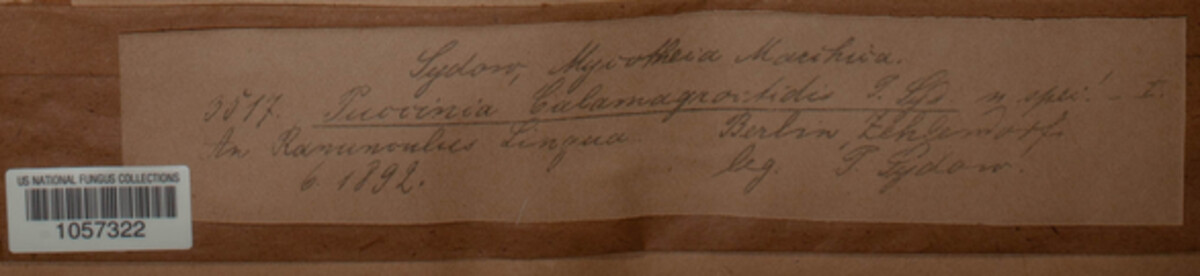 Sydow, Mycotheca Marchica.
3517. Puccinia Calamagrostidis P. Syd. n. spec.! - I.
An Ranunculus Lingua. Berlin, Zehlendorf.
6. 1892. leg. P. Sydow.
US NATIONAL FUNGUS COLLECTIONS
1057322